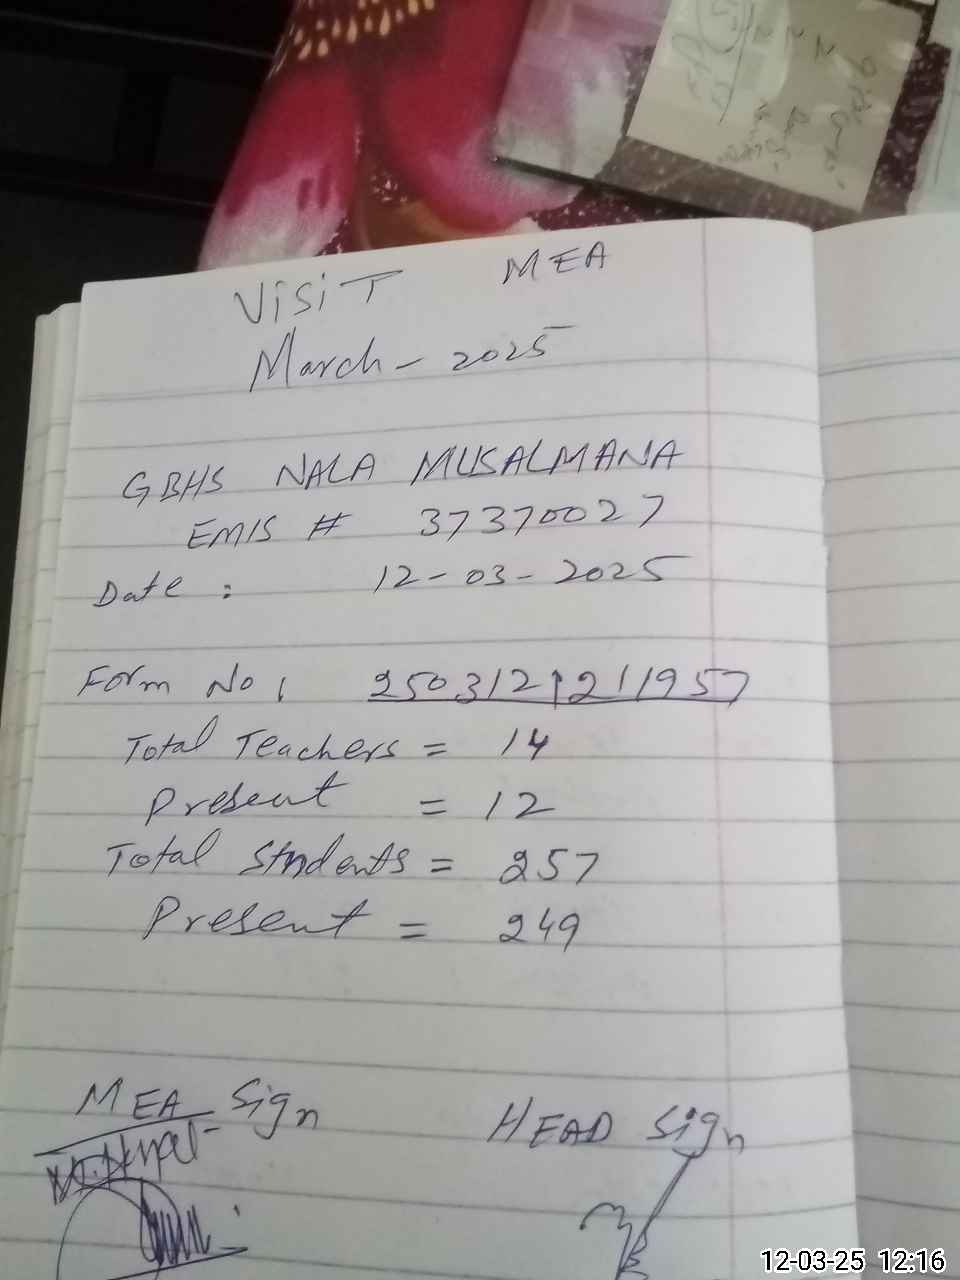 VISIT MEA
March - 2025
GBHS NALA MUSALMANA
EMIS # 37370027
Date : 12-03-2025
Form No : 2503121211957
Total Teachers = 14
Present = 12
Total Students = 257
Present = 249
MEA Sign HEAD Sign
12-03-25 12:16